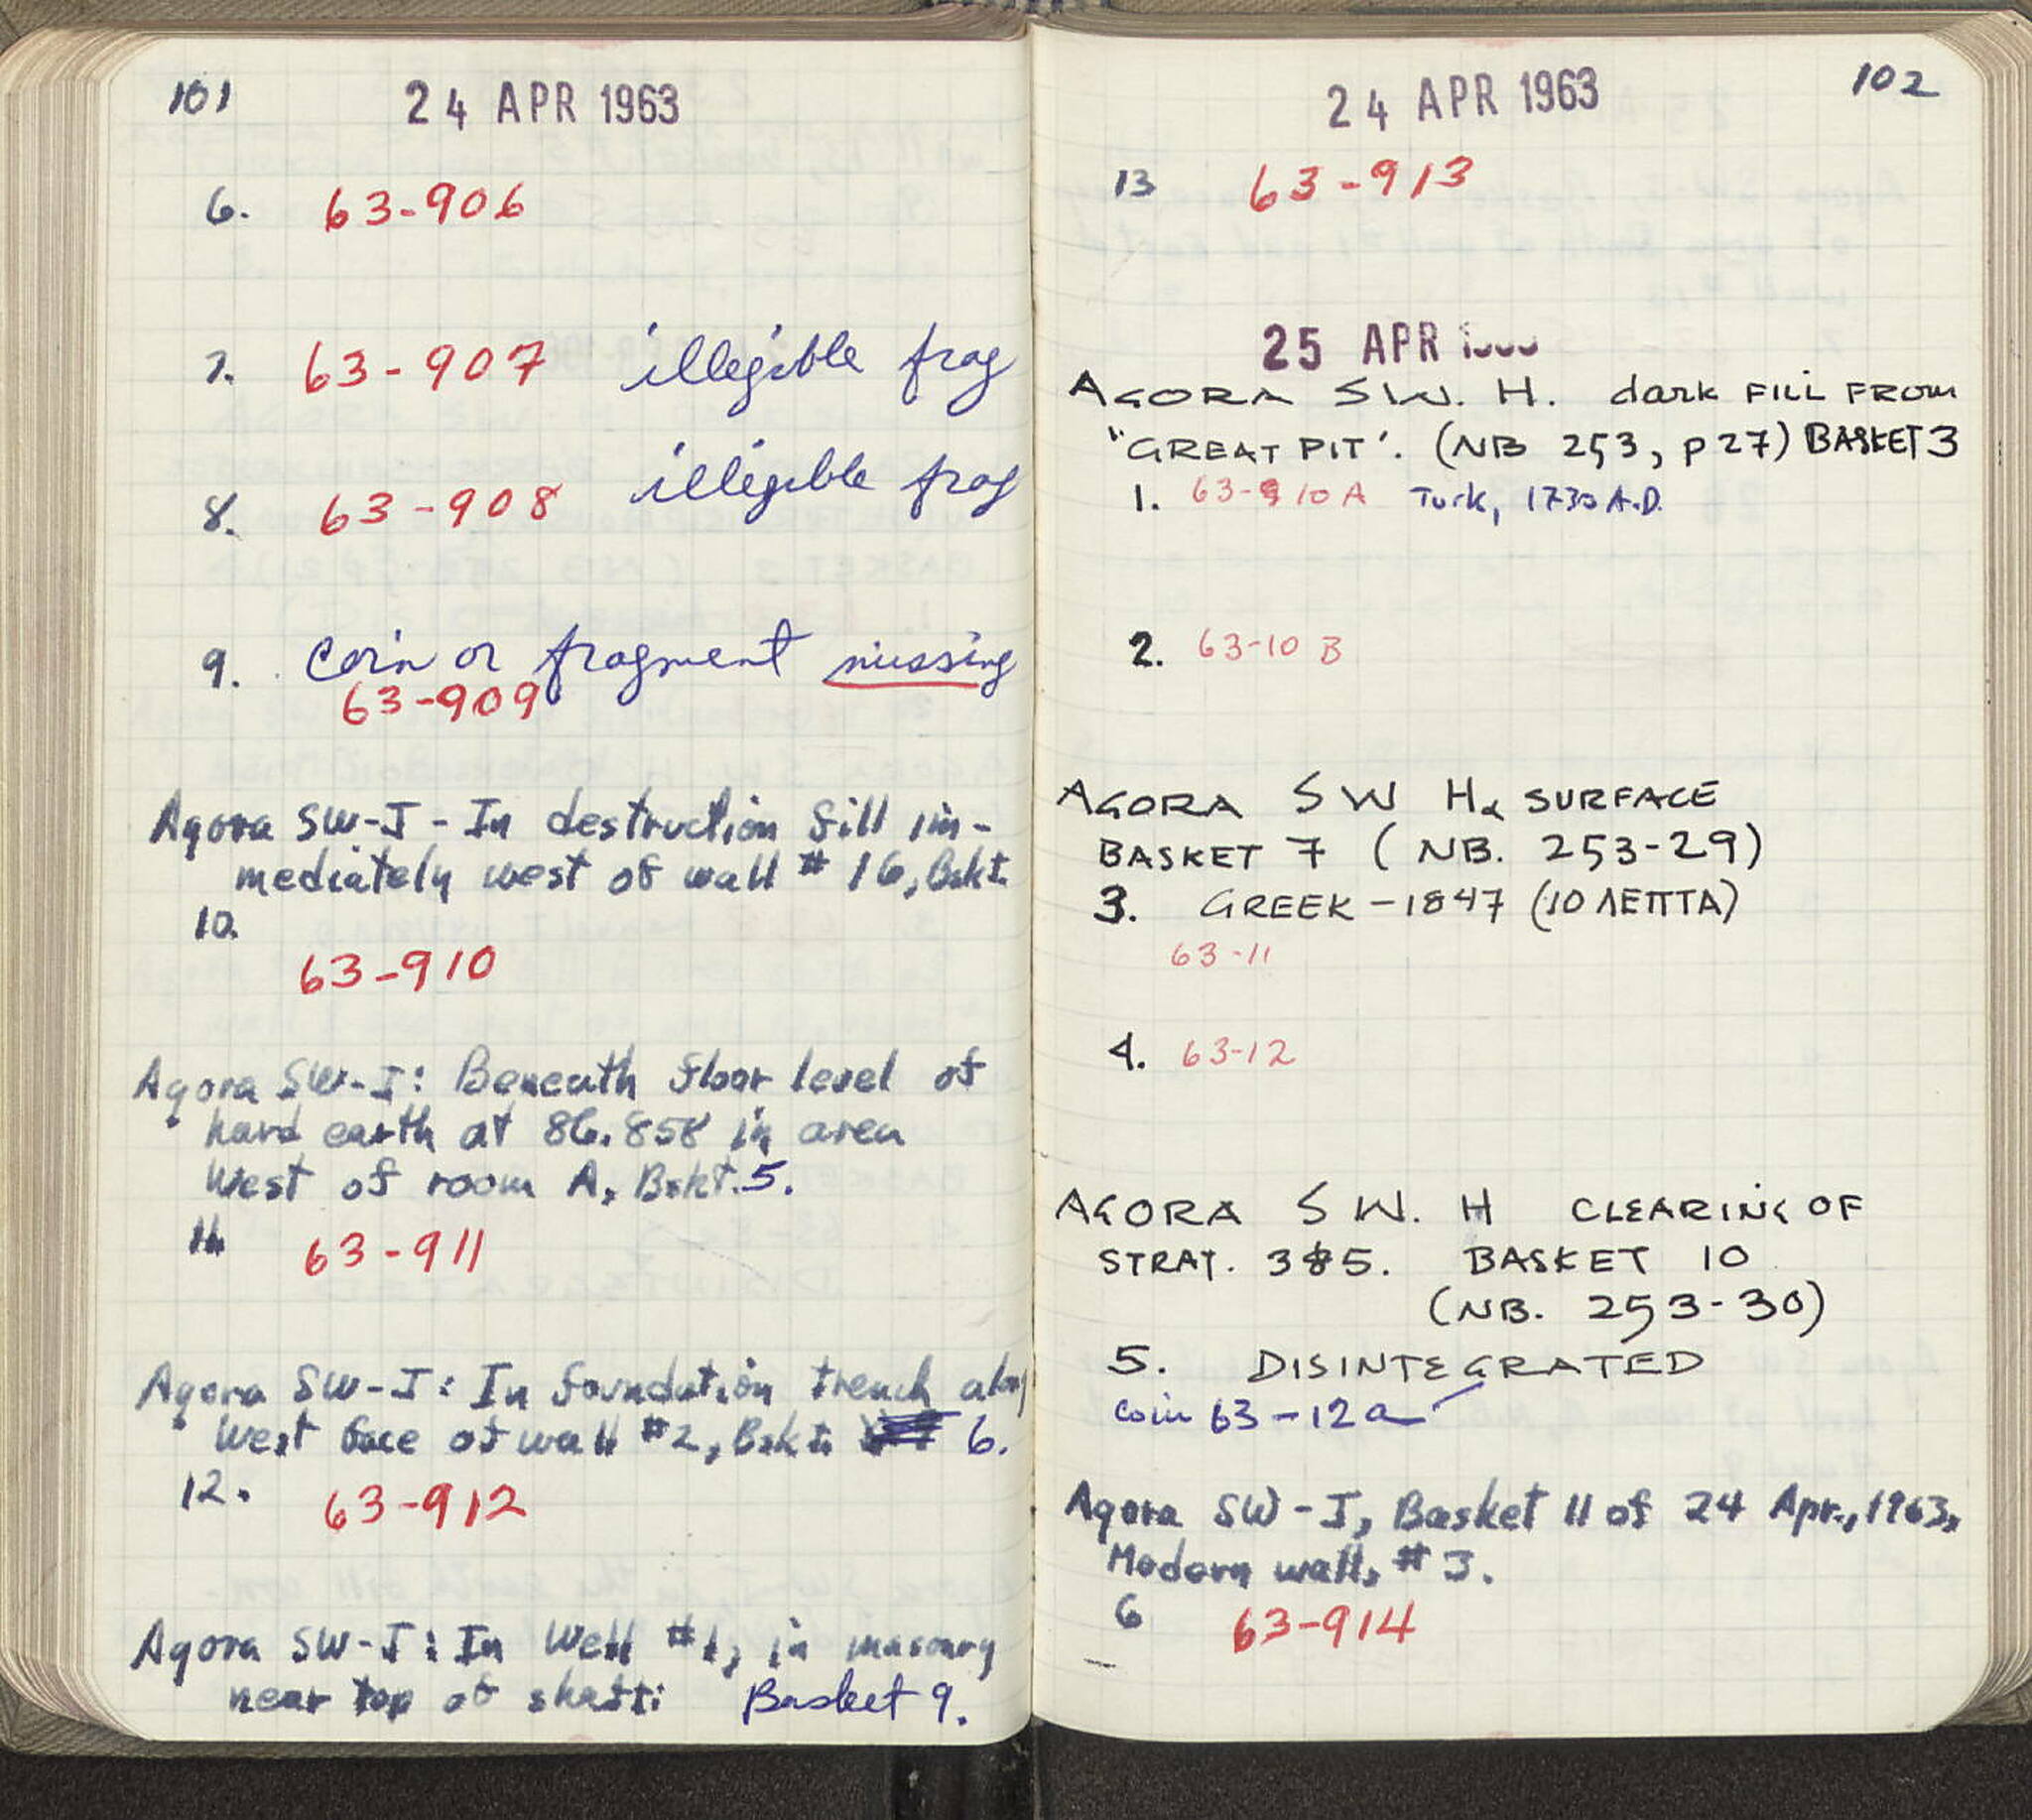 101
24 APR 1963
6. 63-906
7. 63-907 illegible frag
8. 63-908 illegible frag
9. Coin or fragment missing
63-909
Agora SW-I - In destruction fill im-
mediately west of wall # 16, Bskt.
10.
63-910
Agora SW-I: Beneath floor level of
hard earth at 86.858 in area
West of room A, Bskt. 5.
11. 63-911
Agora SW-I: In foundation trench along
West face of wall #2, Bskt. 6.
12. 63-912
Agora SW-I: In Well #1, in masonry
near top of shaft: Basket 9.
102
24 APR 1963
13 63-913
25 APR
AGORA SW. H. dark FILL FROM
"GREAT PIT'. (NB 253, p 27) BASKET 3
1. 63-910 A Turk, 1730 A.D.
2. 63-10 B
AGORA SW H, SURFACE
BASKET 7 (NB. 253-29)
3. GREEK - 1847 (10 ΛΕΠΤΑ)
63-11
4. 63-12
AGORA SW. H CLEARING OF
STRAT. 3&5. BASKET 10
(NB. 253-30)
5. DISINTEGRATED
coin 63-12a
Agora SW-I, Basket 11 of 24 Apr., 1963,
Modern wall, # 3.
6 63-914